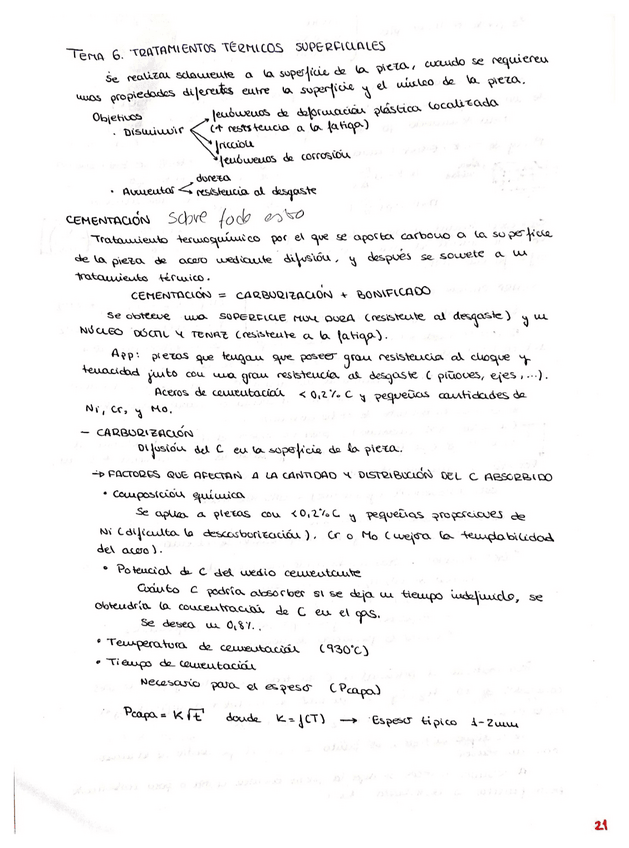 TEMA 6. TRATAMIENTOS TÉRMICOS SUPERFICIALES
Se realizan solamente a la superficie de la pieza, cuando se requieren
unas propiedades diferentes entre la superficie y el núcleo de la pieza.
Objetivos
· Disminuir
fenómenos de deformación plástica localizada
(+ resistencia a la fatiga)
fricción
fenómenos de corrosión
· Aumentar
dureza
resistencia al desgaste
CEMENTACIÓN sobre todo esto
Tratamiento termoquímico por el que se aporta carbono a la superficie
de la pieza de acero mediante difusión, y después se somete a un
tratamiento térmico.
CEMENTACIÓN = CARBURIZACIÓN + BONIFICADO
Se obtiene una SUPERFICIE MUY DURA (resistente al desgaste) y un
NÚCLEO DÚCTIL Y TENAZ (resistente a la fatiga).
App: piezas que tengan que poseer gran resistencia al choque y
tenacidad junto con una gran resistencia al desgaste (piñones, ejes,...).
Aceros de cementación <0,2% C y pequeñas cantidades de
Ni, Cr, y Mo.
- CARBURIZACIÓN
Difusión del C en la superficie de la pieza.
→ FACTORES QUE AFECTAN A LA CANTIDAD Y DISTRIBUCIÓN DEL C ABSORBIDO
• Composición química
Se aplica a piezas con <0,2%C y pequeñas proporciones de
Ni (dificulta la descarburización), Cr o Mo (mejora la templabilidad
del acero).
• Potencial de C del medio cementante
Cuánto C podría absorber si se deja un tiempo indefinido, se
obtendría la concentración de C en el gas.
Se desea un 0,8%.
• Temperatura de cementación (930°C)
• Tiempo de cementación
Necesario para el espesor (Pcapa)
Pcapa = K√t donde K = f(T) → Espesor típico 1-2mm
21